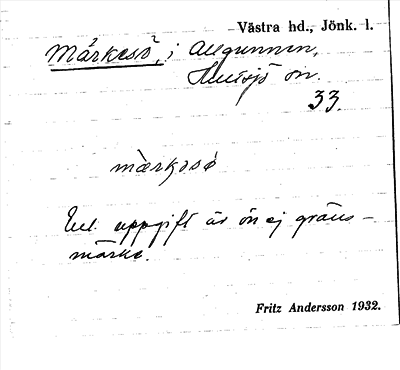 Västra hd., Jönk. l.
Märkesö, i Allgunnen,
Hultsjö sn.
33.
mærkəsø
Enl. uppgift är ön ej gräns-
märke.
Fritz Andersson 1932.